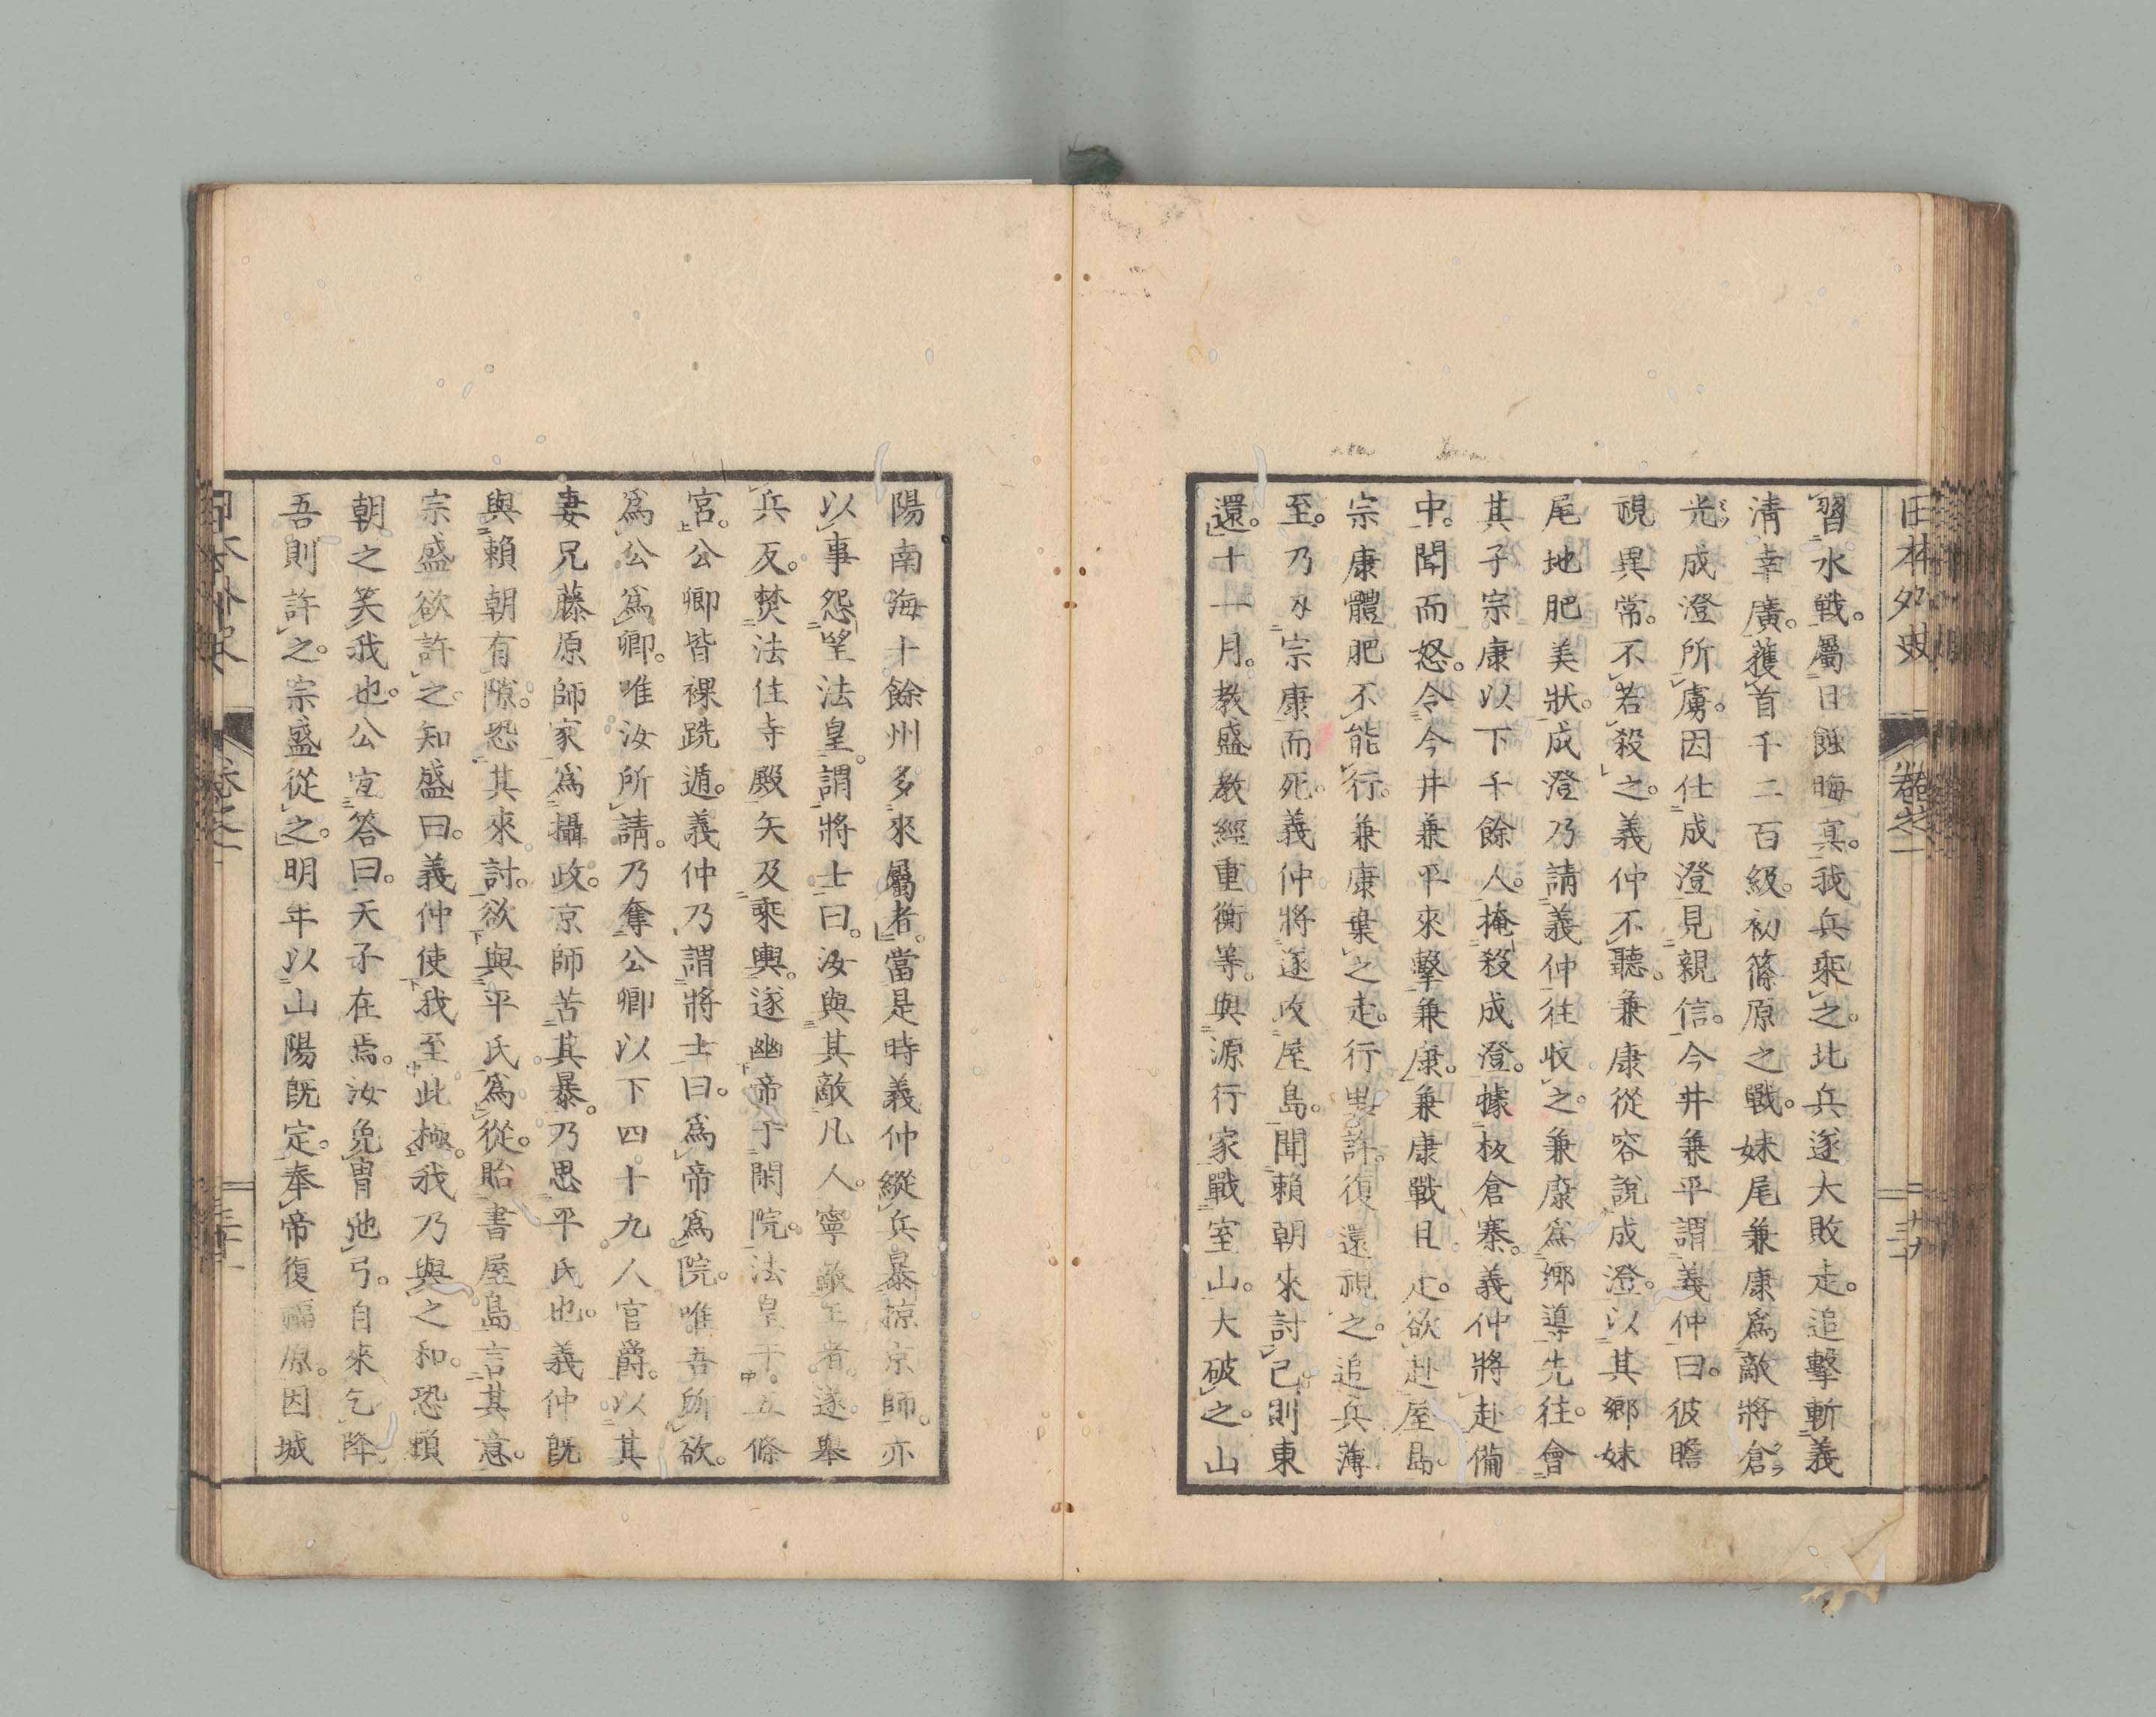 習水戰。屬日蝕晦冥。我兵乘之。北兵遂大敗走。追擊斬義
清幸廣。獲首千二百級。初篠原之戰。妹尾兼康爲敵將倉
光成澄所虜。因仕成澄見親信。今井兼平謂義仲曰。彼瞻
視異常。不若殺之。義仲不聽。兼康從容說成澄。以其鄉妹
尾地肥美狀。成澄乃請義仲往收之。兼康爲鄉導先往。會
其子宗康以下千餘人。掩殺成澄。據板倉寨。義仲將赴備
中。聞而怒。令今井兼平來擊兼康。兼康戰且走。欲赴屋島。
宗康體肥不能行。兼康棄之走。行數許。復還視之。追兵薄
至。乃刃宗康而死。義仲將遂攻屋島。聞賴朝來討己。則東
還。十一月。教盛教經重衡等。與源行家戰室山。大破之。山
陽南海十餘州多來屬者。當是時義仲縱兵暴掠京師。亦
以事怨望法皇。謂將士曰。汝與其敵凡人。寧敵王者。遂舉
兵反。焚法住寺殿矢及乘輿。遂幽帝于閑院。法皇于五條
宮。公卿皆裸跣遁。義仲乃謂將士曰。爲帝爲院。唯吾所欲。
爲公爲卿。唯汝所請。乃奪公卿以下四十九人官爵。以其
妻兄藤原師家爲攝政。京師苦其暴。乃思平氏也。義仲既
與賴朝有隙。恐其來討。欲與平氏爲從。貽書屋島言其意。
宗盛欲許之。知盛曰。義仲使我至此極。我乃與之和。恐賴
朝之笑我也。公宜答曰。天子在焉。汝免冑弛弓。自來乞降。
吾則許之。宗盛從之。明年以山陽既定。奉帝復福原。因城
日本外史
卷之一